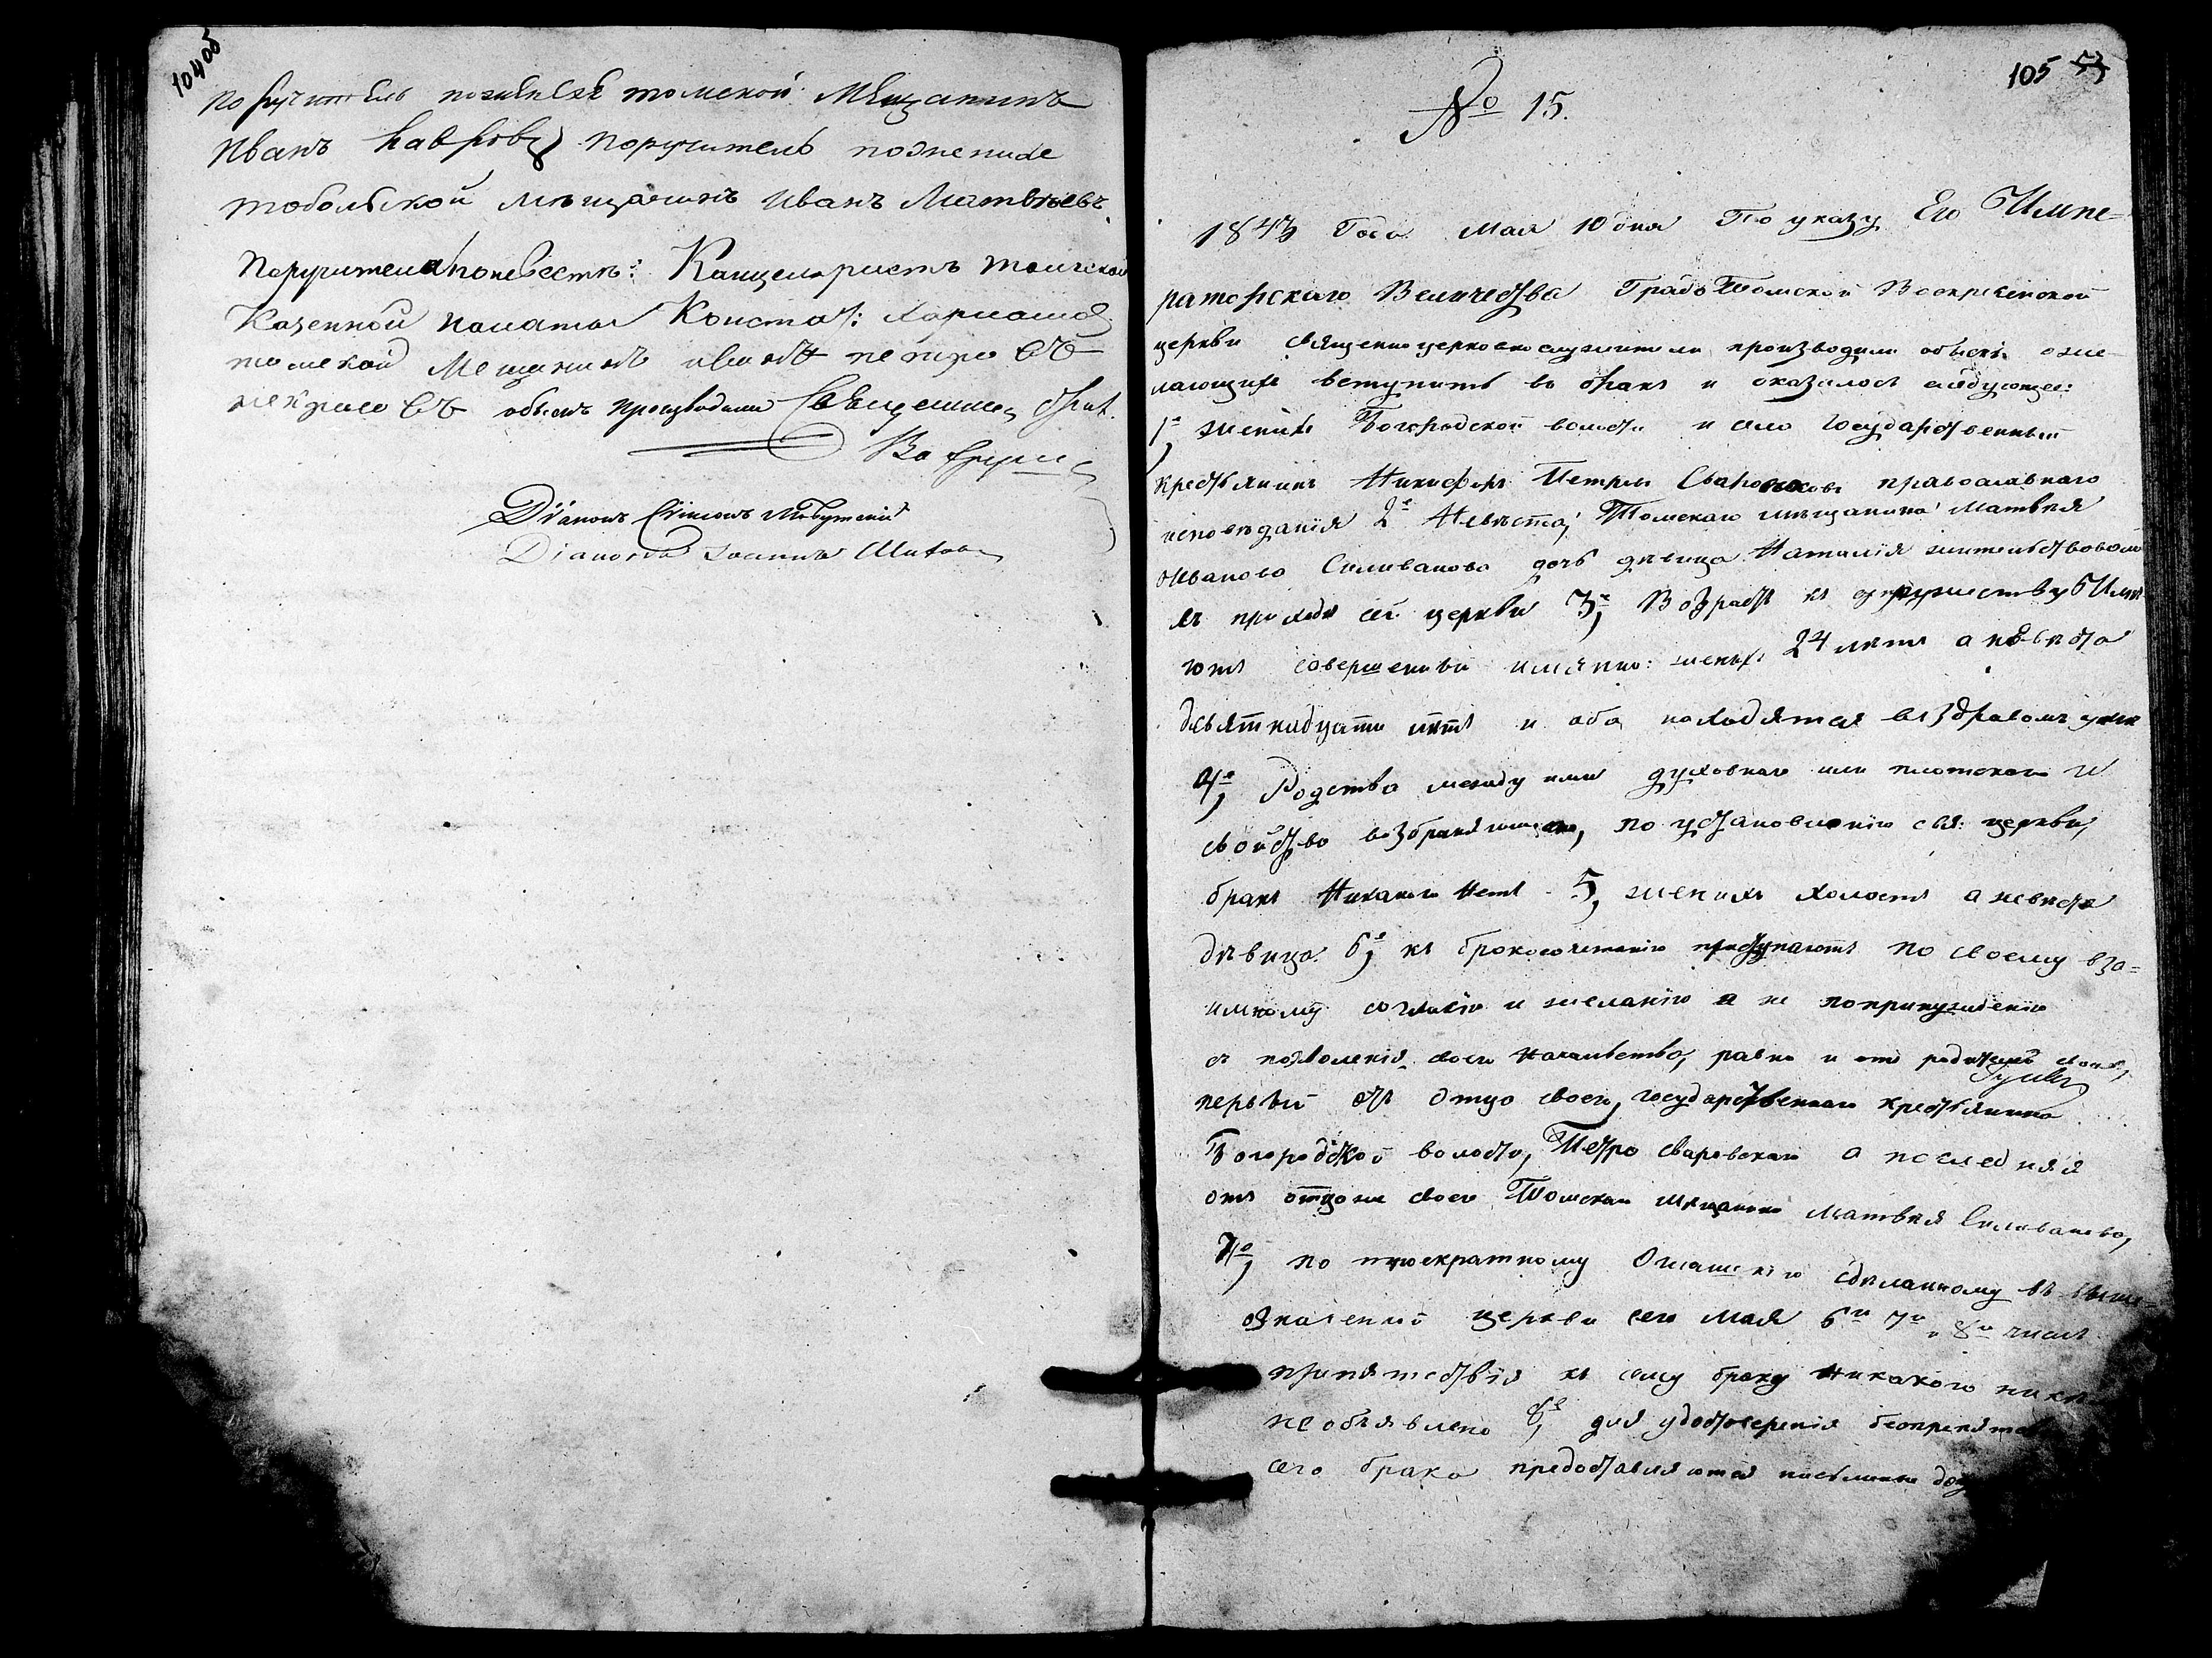 104об
поручитель поженихе томской Мещанинъ
Иванъ Лавровъ поручитель поженихе
тобольской мѣщанинъ Иванъ Матвѣевъ
Поручители поневестѣ: Канцеляристъ томской
Казенной палаты
томской Мещанинъ иванъ петровъ
некрасовъ обыскъ производили Священникъ
Діаконъ Симеонъ
Діаконъ Іоаннъ
105
№ 15.
1843 Года Мая 10 дня По указу Его Импе=
раторскаго Величества Градо Томской Воскресенской
церкви священноцерковнослужители производили обыскъ о же-
лающихъ вступить въ бракъ и оказалось следующее:
1е женихъ Богородской волости и села государственный
крестьянинъ Никифоръ Петровъ православнаго
исповѣданія 2е Невѣста, Томскаго мѣщанина Матвея
Иванова Силиванова дочь девица Наталія жительствовали
въ приходе сей церкви 3е, Возрастъ къ супружеству Име
ютъ совершенный имянно: женихъ 24 летъ а невѣста
девятнадцати летъ и оба находятся въ здравомъ уме
4е, Родства между ими духовнаго или плотскаго и
свойства возбраняющаго, по установленію свя: церкви,
бракъ Никакого Нетъ 5, женихъ холостъ а невеста
девица 6е, къ бракосочетанію приступаютъ по своему вза=
имному согласію и желанію а не попринужденію
съ позволенія своего Начальства, равно и отъ родителей своихъ,
первый отъ отца своего, государственнаго крестьянина
Богородской волости, Петра Сваровскаго а последняя
отъ отца же своего Томскаго Мещанина Матвея Силиванова,
7е, по троекратному Оглашенію сделанному въ выше=
означенной церкви сего Мая 6го 7го и 8го числъ
препятствія къ сему браку Никакого
не объявлено 8е, для удостоверенія
сего брака предоставляются письменные